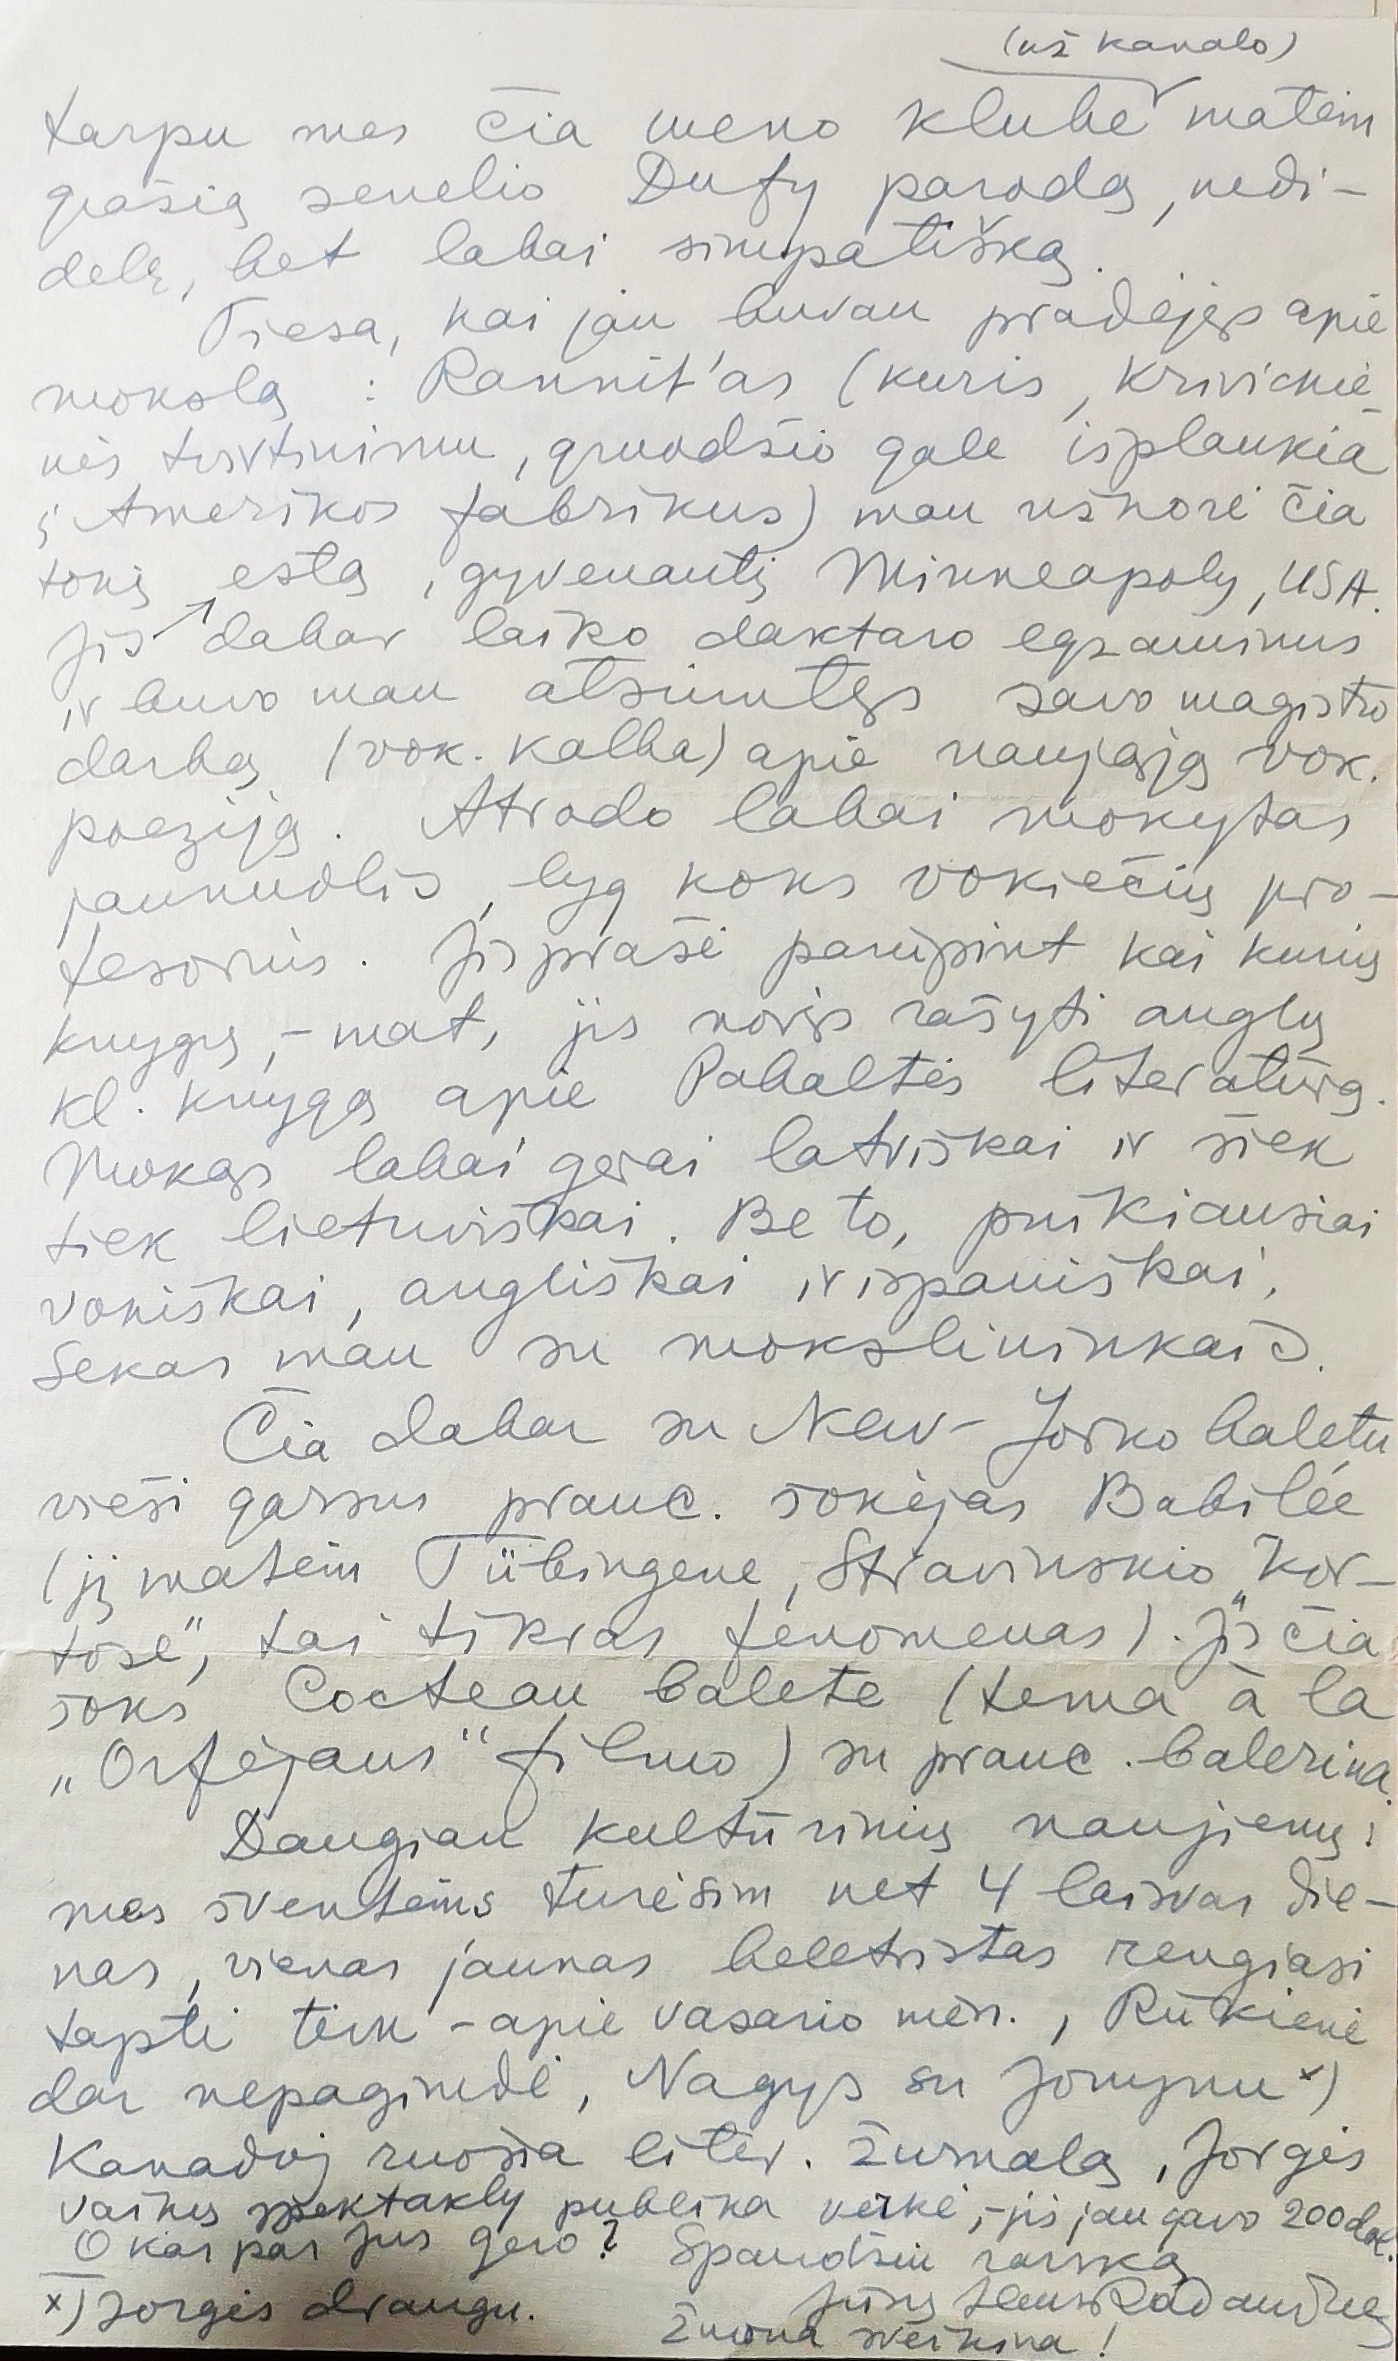 (už kanalo)
tarpu mes čia meno klube matėm
gražią senelio Dufy parodą, nedi-
delę, bet labai simpatišką.
Tiesa, kai jau buvau pradėjęs apie
mokslą: Rannit'as (kuris, Krivickie-
nės tvirtinimu, gruodžio gale išplaukia
į Amerikos fabrikus) man užkorė čia
tokį estą, gyvenantį Minneapoly, USA.
Jis dabar laiko daktaro egzaminus
ir buvo man atsiuntęs savo magistro
darbą (vok. kalba) apie naująją vok.
poeziją. Atrodo labai mokytas
jaunuolis, lyg koks vokiečių pro-
fesorius. Jis prašė parūpint kai kurių
knygų, - mat, jis norįs rašyti anglų
kl. knygą apie Pabaltės literatūrą.
Mokąs labai gerai latviškai ir šiek
tiek lietuviškai. Be to, puikiausiai
vokiškai, angliškai ir ispaniškai.
Sekas man su mokslininkais.
Čia dabar su New-Jorko baletu
vieši garsus pranc. šokėjas Babilée
(jį matėm Tübingene, Stravinskio „Kor-
tose", tai tikras fenomenas). Jis čia
šoks Cocteau balete (tema à la
„Orfėjaus" filmo) su pranc. balerina.
Daugiau kultūrinių naujienų:
mes šventėms turėsim net 4 laisvas die-
nas, vienas jaunas beletristas rengiasi
tapti tėvu - apie vasario mėn., Rūkienė
dar nepagimdė, Nagys su Jonynu x)
Kanadoj ruošia liter. žurnalą, Jorgės
vaikų spektakly publika verkė, - jis jau gavo 200 dol.
O kas pas Jus gero? Spaudžiu ranką
Jūsų Henr Radauskas
x) Jorgės draugu.
Žmona sveikina!